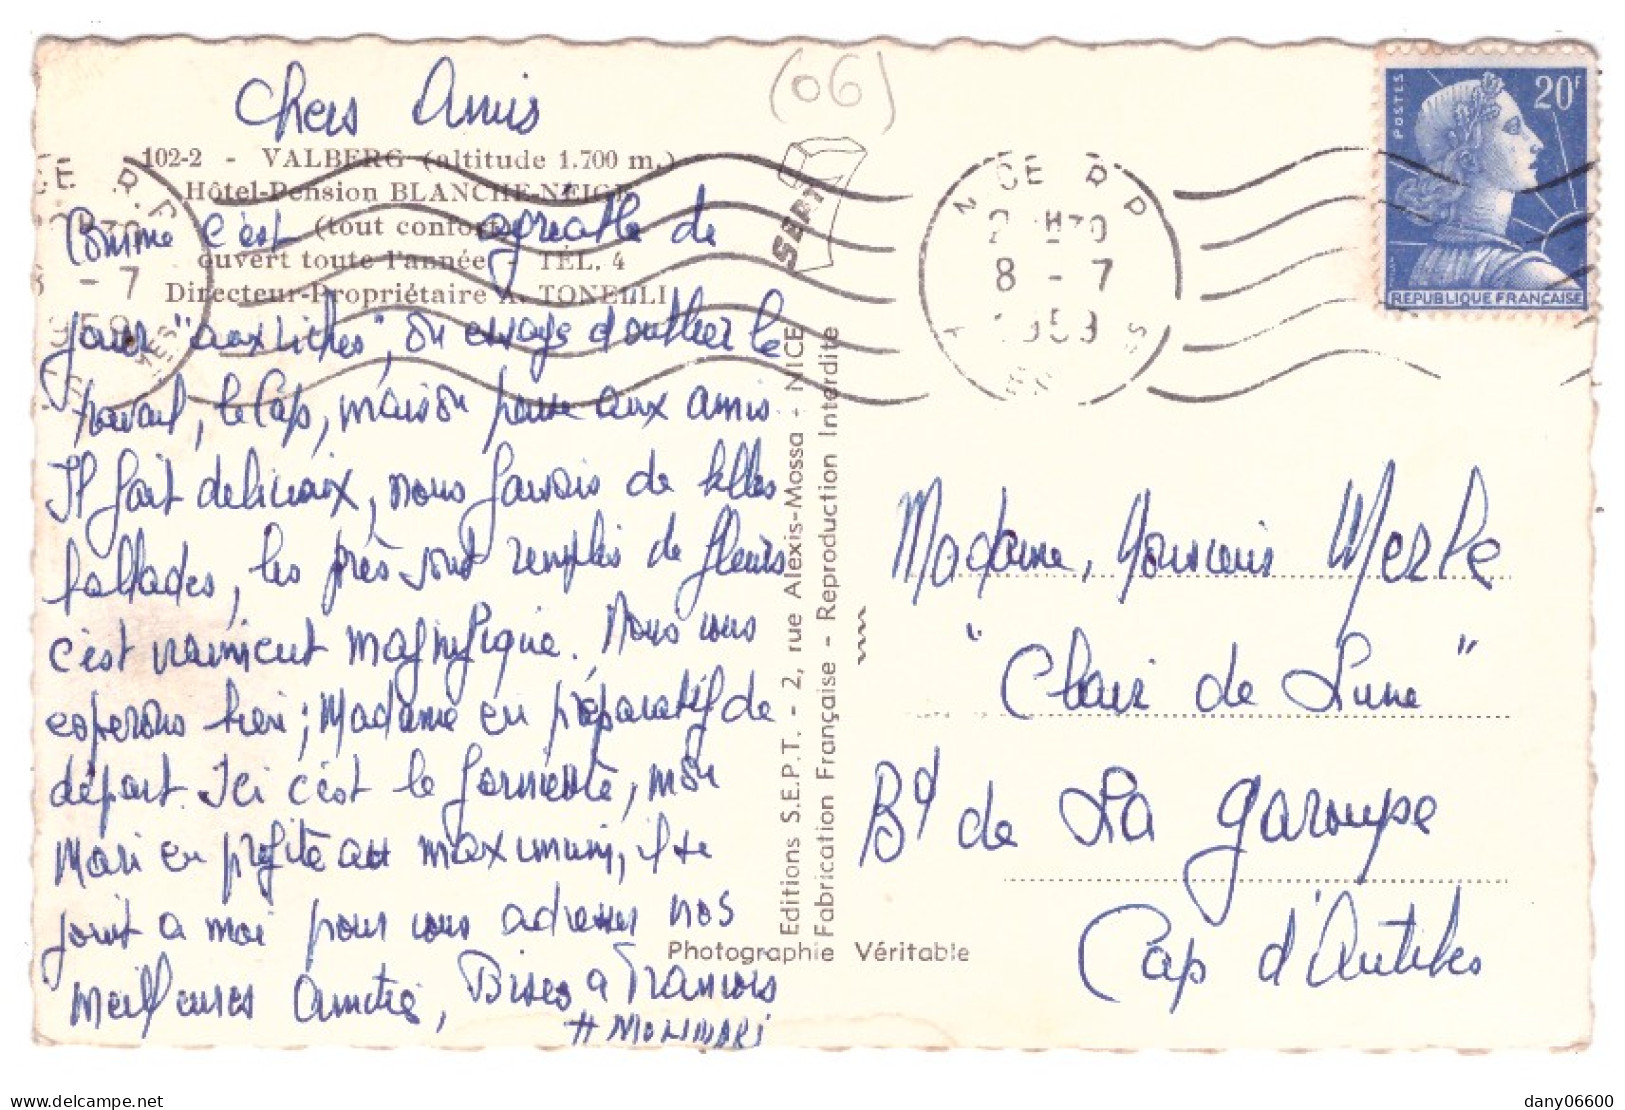 (06)
Chers Amis
102-2 - VALBERG (altitude 1.700 m.)
Hôtel-Pension BLANCHE-NEIGE
(tout confort)
ouvert toute l'année - TÉL. 4
Directeur-Propriétaire A. TONELLI
Comme c'est agréable de
jouer "aux riches", on essaye d'oublier le
travail, le Cap, maison pour aux amis.
Il fait delicieux, nous faisons de belles
ballades, les près sont remplis de fleurs
c'est vraiment magnifique. Nous vous
esperons bien; Madame en préparatif de
départ. Ici c'est le farniente, mon
Mari en profite au maximum, il se
joint a moi pour vous adresser nos
Meilleures Amitiés, Bises a Francois
MOLINARI
SEPT
Editions S.E.P.T. - 2, rue Alexis-Mossa - NICE
Fabrication Française - Reproduction Interdite
Photographie Véritable
NICE R.P
8 - 7
POSTES
20F
REPUBLIQUE FRANÇAISE
Madame, Monsieur Merle
"Clair de Lune"
Bd de La Garoupe
Cap d'Antibes
delcampe.net
dany06600